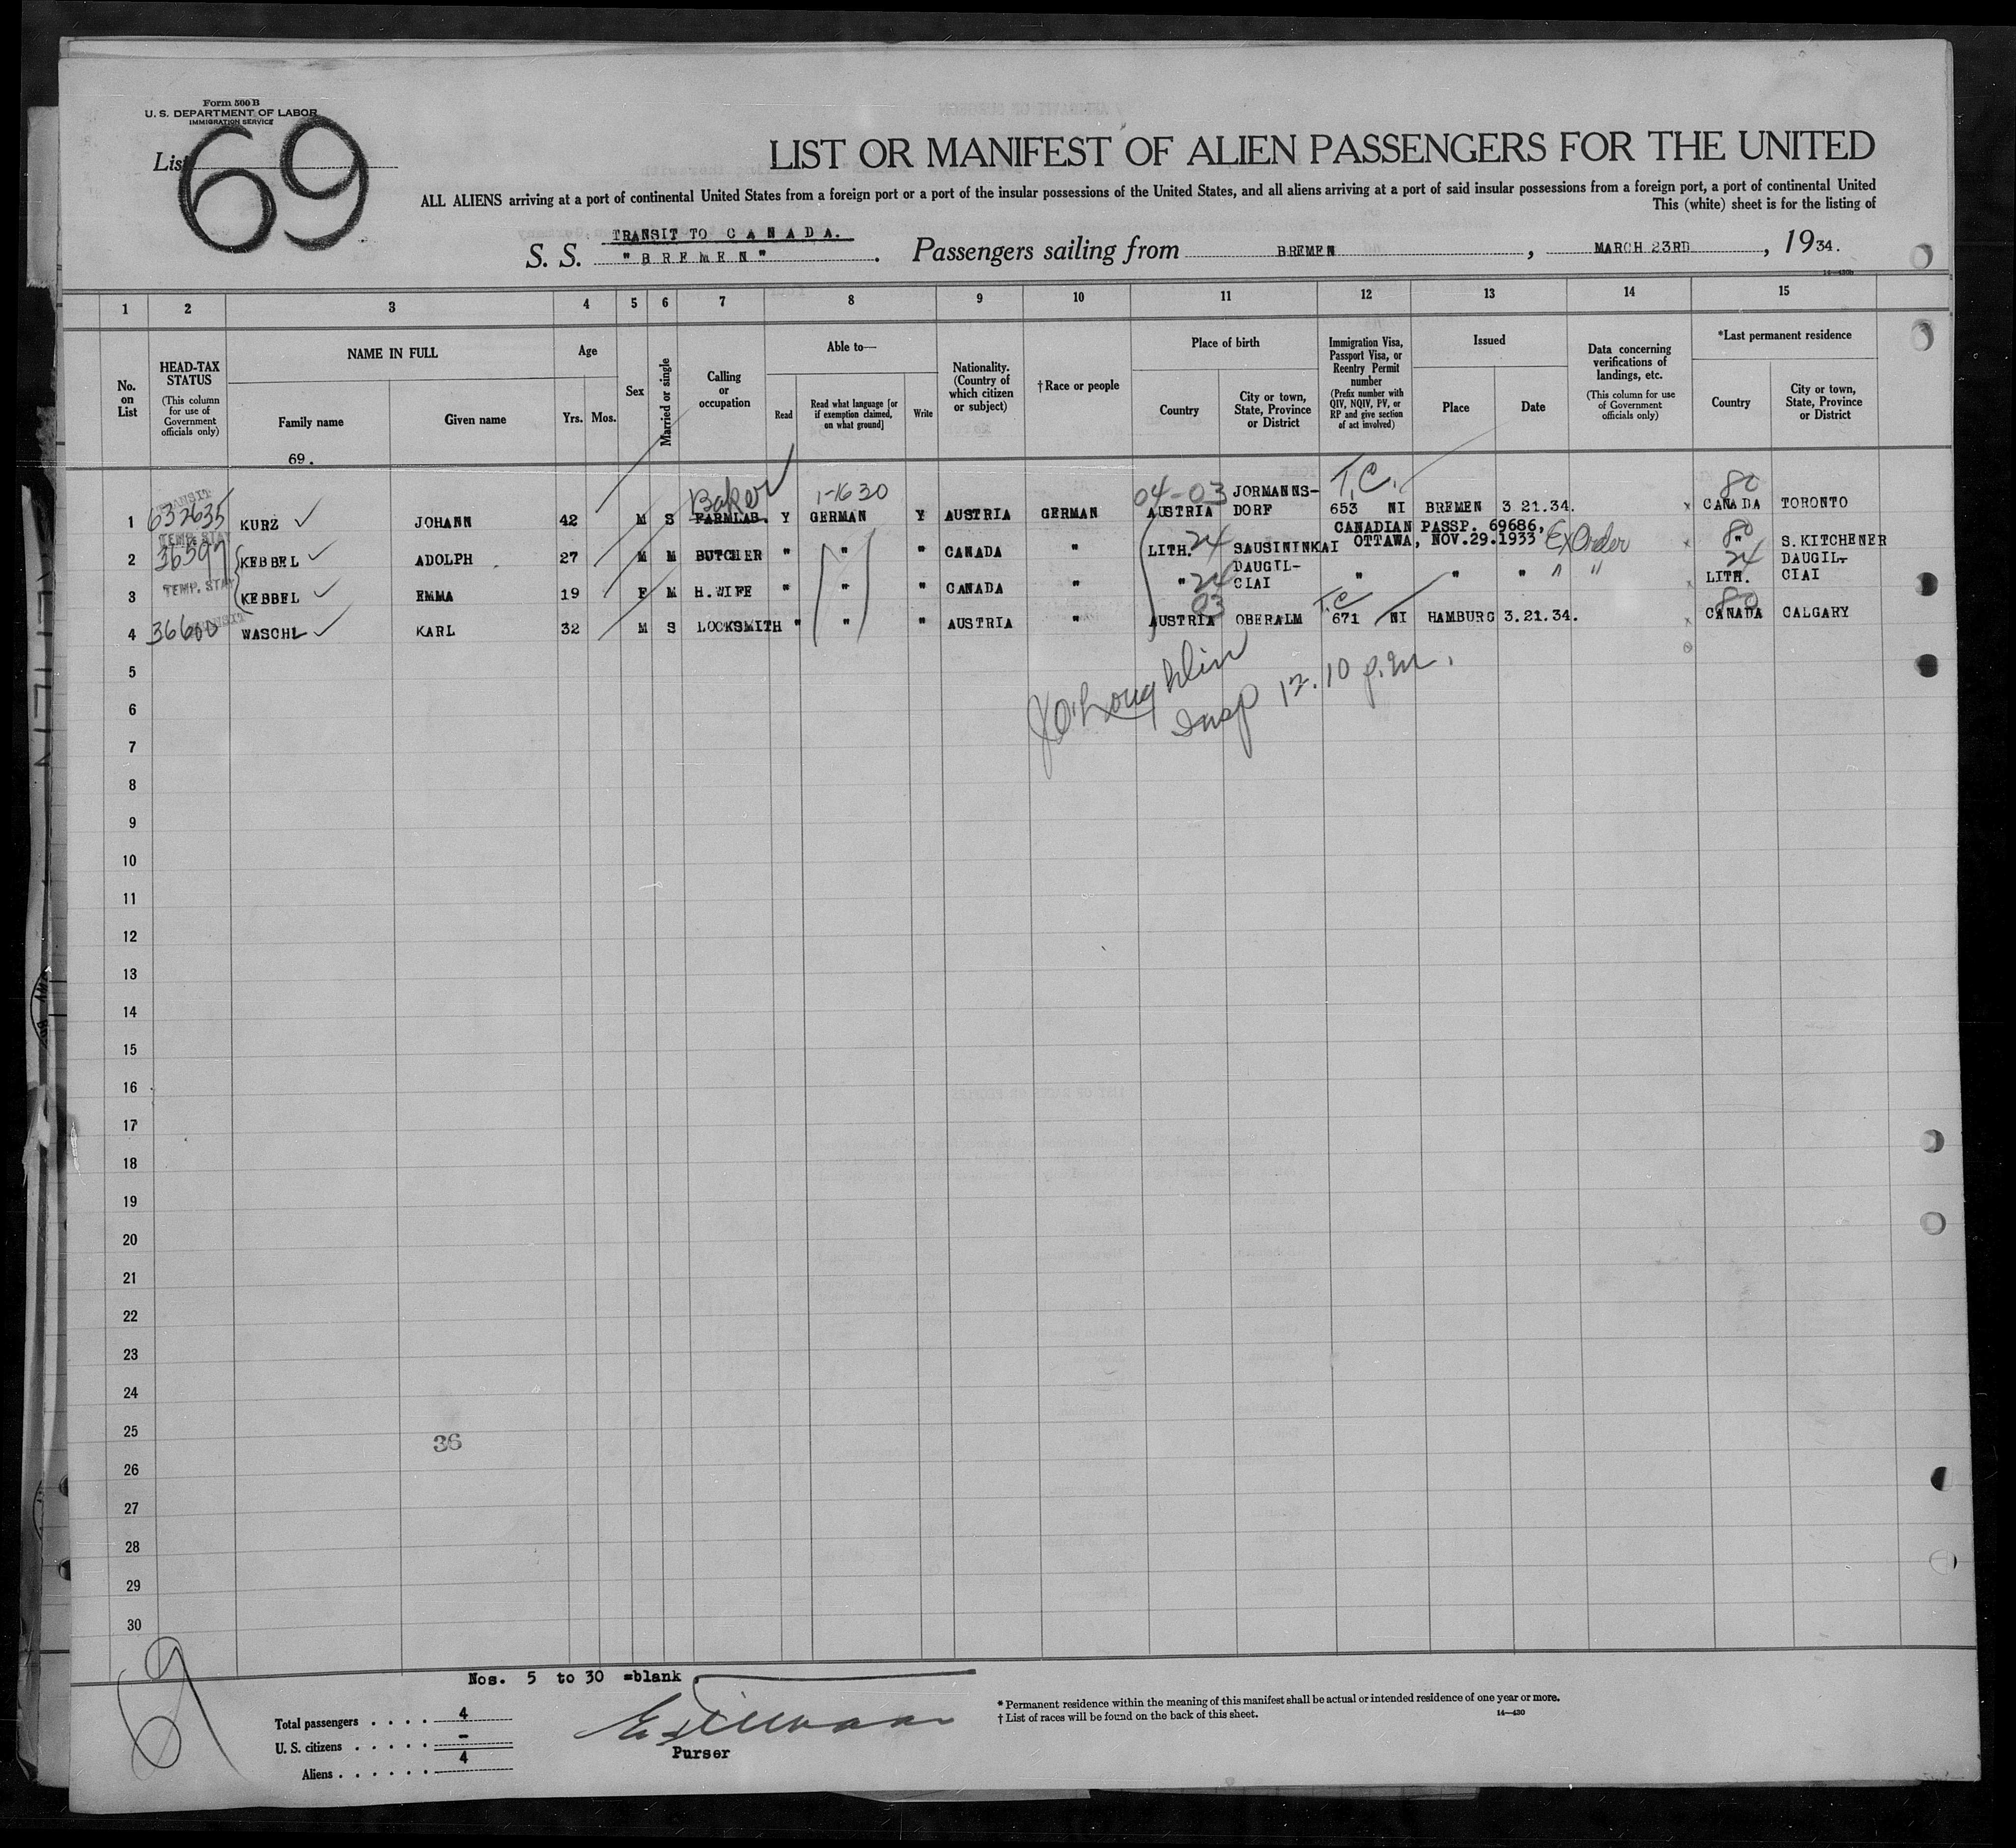 Form 500 B
U. S. DEPARTMENT OF LABOR
IMMIGRATION SERVICE
List 69
LIST OR MANIFEST OF ALIEN PASSENGERS FOR THE UNITED
ALL ALIENS arriving at a port of continental United States from a foreign port or a port of the insular possessions of the United States, and all aliens arriving at a port of said insular possessions from a foreign port, a port of continental United
This (white) sheet is for the listing of
TRANSIT TO CANADA.
S. S. "BREMEN". Passengers sailing from BREMEN, MARCH 23RD, 1934.
14—430b
1 2 3 4 5 6 7 8 9 10 11 12 13 14 15
No. on List
HEAD-TAX STATUS
(This column for use of Government officials only)
NAME IN FULL
Family name
Given name
Age
Yrs. Mos.
Sex
Married or single
Calling or occupation
Able to—
Read
Read what language [or if exemption claimed, on what ground]
Write
Nationality. (Country of which citizen or subject)
†Race or people
Place of birth
Country
City or town, State, Province or District
Immigration Visa, Passport Visa, or Reentry Permit number
(Prefix number with QIV, NQIV, PV, or RP and give section of act involved)
Issued
Place
Date
Data concerning verifications of landings, etc.
(This column for use of Government officials only)
*Last permanent residence
Country
City or town, State, Province or District
69.
TRANSIT Baker 1-1630 04-03 JORMANNS- T.C. 80
1 632635 KURZ JOHANN 42 M S FARMLAB. Y GERMAN Y AUSTRIA GERMAN AUSTRIA DORF 653 NI BREMEN 3.21.34. x CANADA TORONTO
TEMP. STAY CANADIAN PASSP. 69686,
2 36597 KEBBEL ADOLPH 27 M M BUTCHER " " " CANADA " LITH. 24 SAUSININKAI OTTAWA, NOV.29.1933 Ex Order x 80 " S.KITCHENER
TEMP. STAY DAUGIL- 24 DAUGIL-
3 KEBBEL EMMA 19 F M H.WIFE " " " CANADA " " 24 CIAI " " " " " x LITH. CIAI
TRANSIT 03 T.C. 80
4 36600 WASCHL KARL 32 M S LOCKSMITH " " " AUSTRIA " AUSTRIA OBERALM 671 NI HAMBURG 3.21.34. x CANADA CALGARY
5
J O'Loughlin
6 Insp 12.10 p.m.
7
8
9
10
11
12
13
14
15
16
17
18
19
20
21
22
23
24
25 36
26
27
28
29
30
69
Nos. 5 to 30 =blank
Total passengers . . . . 4
U. S. citizens . . . . . –
Aliens . . . . . . 4
Purser
* Permanent residence within the meaning of this manifest shall be actual or intended residence of one year or more.
† List of races will be found on the back of this sheet.
14—430